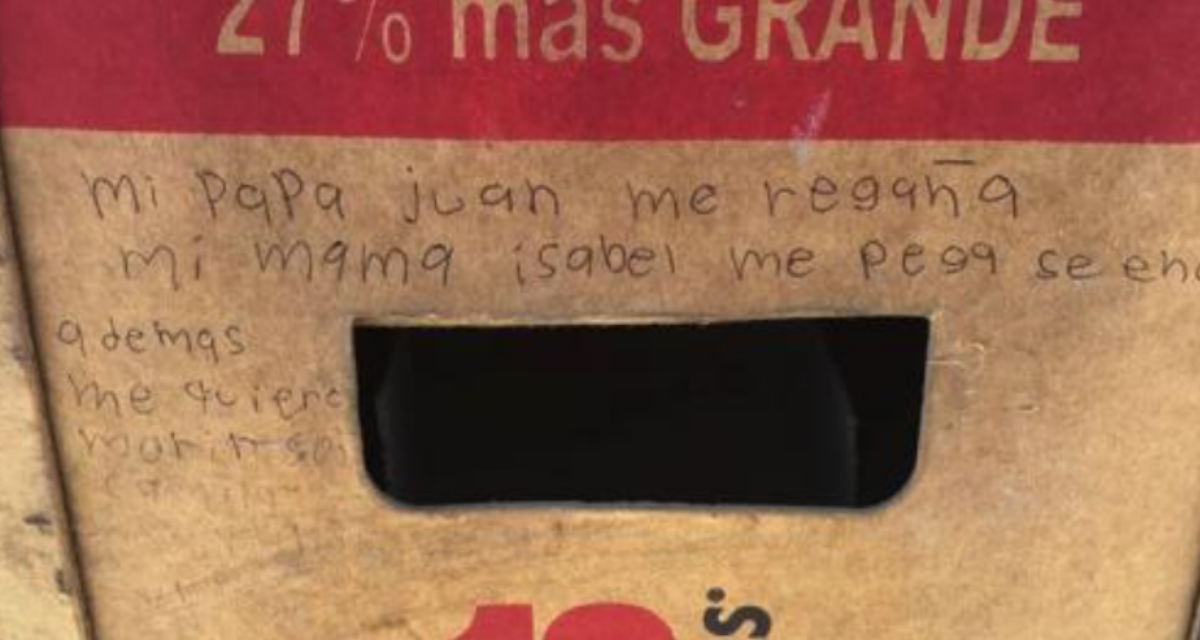 27% mas GRANDE
mi papa juan me regaña
mi mama isabel me pega se
ademas
me quiero
morir
12